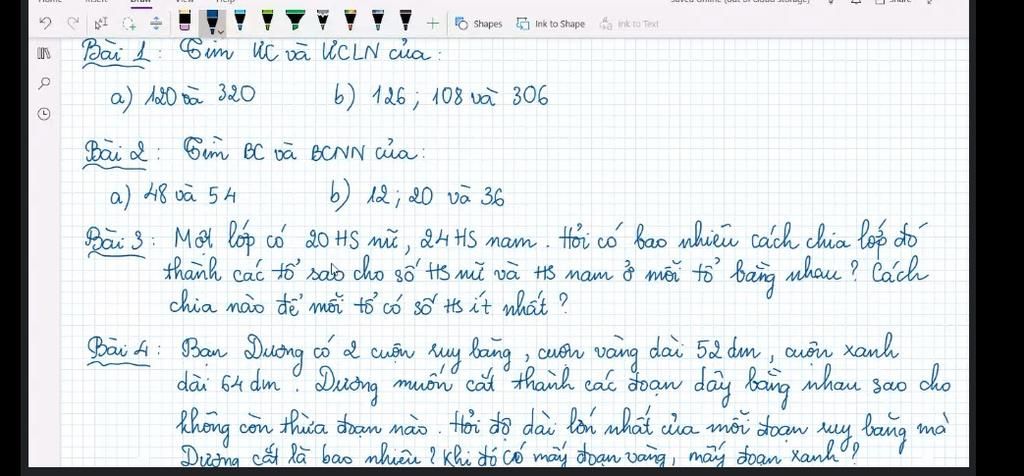 Shapes Ink to Shape Ink to Text
Bài 1: Tìm ƯC và ƯCLN của:
a) 120 và 320 b) 126; 108 và 306
Bài 2: Tìm BC và BCNN của:
a) 48 và 54 b) 12; 20 và 36
Bài 3: Một lớp có 20 HS nữ, 24 HS nam. Hỏi có bao nhiêu cách chia lớp đó
thành các tổ sao cho số HS nữ và HS nam ở mỗi tổ bằng nhau? Cách
chia nào để mỗi tổ có số HS ít nhất?
Bài 4: Bạn Dương có 2 cuộn ruy băng, cuộn vàng dài 52 dm, cuộn xanh
dài 64 dm. Dương muốn cắt thành các đoạn dây bằng nhau sao cho
không còn thừa đoạn nào. Hỏi độ dài lớn nhất của mỗi đoạn ruy băng mà
Dương cắt là bao nhiêu? Khi đó có mấy đoạn vàng, mấy đoạn xanh?